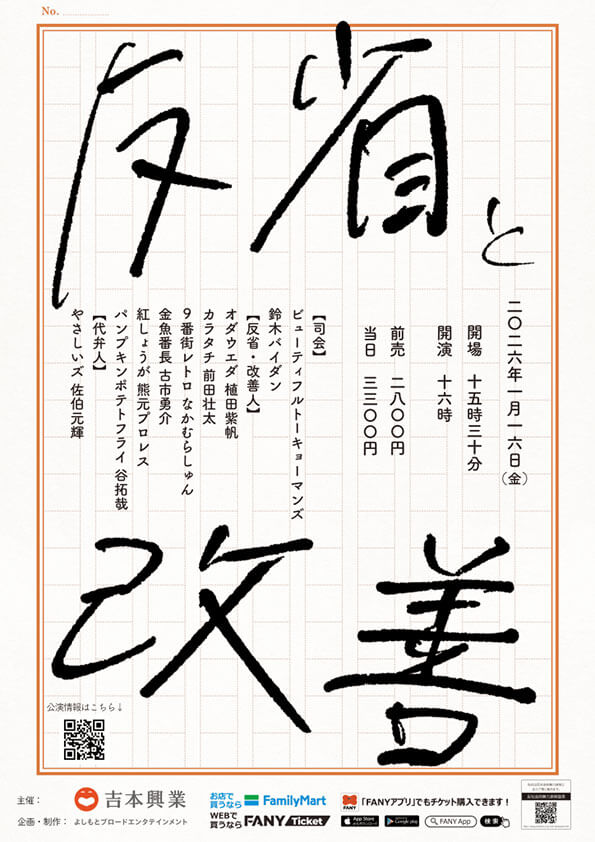 No.
反省と
改善
二〇二六年一月一六日(金)
開場 十五時三十分
開演 十六時
前売 二八〇〇円
当日 三三〇〇円
【司会】
ビューティフルトーキョーマンズ
鈴木バイダン
【反省・改善人】
オダウエダ 植田紫帆
カラタチ 前田壮太
9番街レトロ なかむらしゅん
金魚番長 古市勇介
紅しょうが 熊元プロレス
パンプキンポテトフライ 谷拓哉
【代弁人】
やさしいズ 佐伯元輝
公演情報はこちら↓
主催:
吉本興業
企画・制作:
よしもとブロードエンタテインメント
お店で
買うなら
FamilyMart
WEBで
買うなら
FANY Ticket
FANY
「FANYアプリ」でもチケット購入できます!
App Store
Google play
FANY App
検索